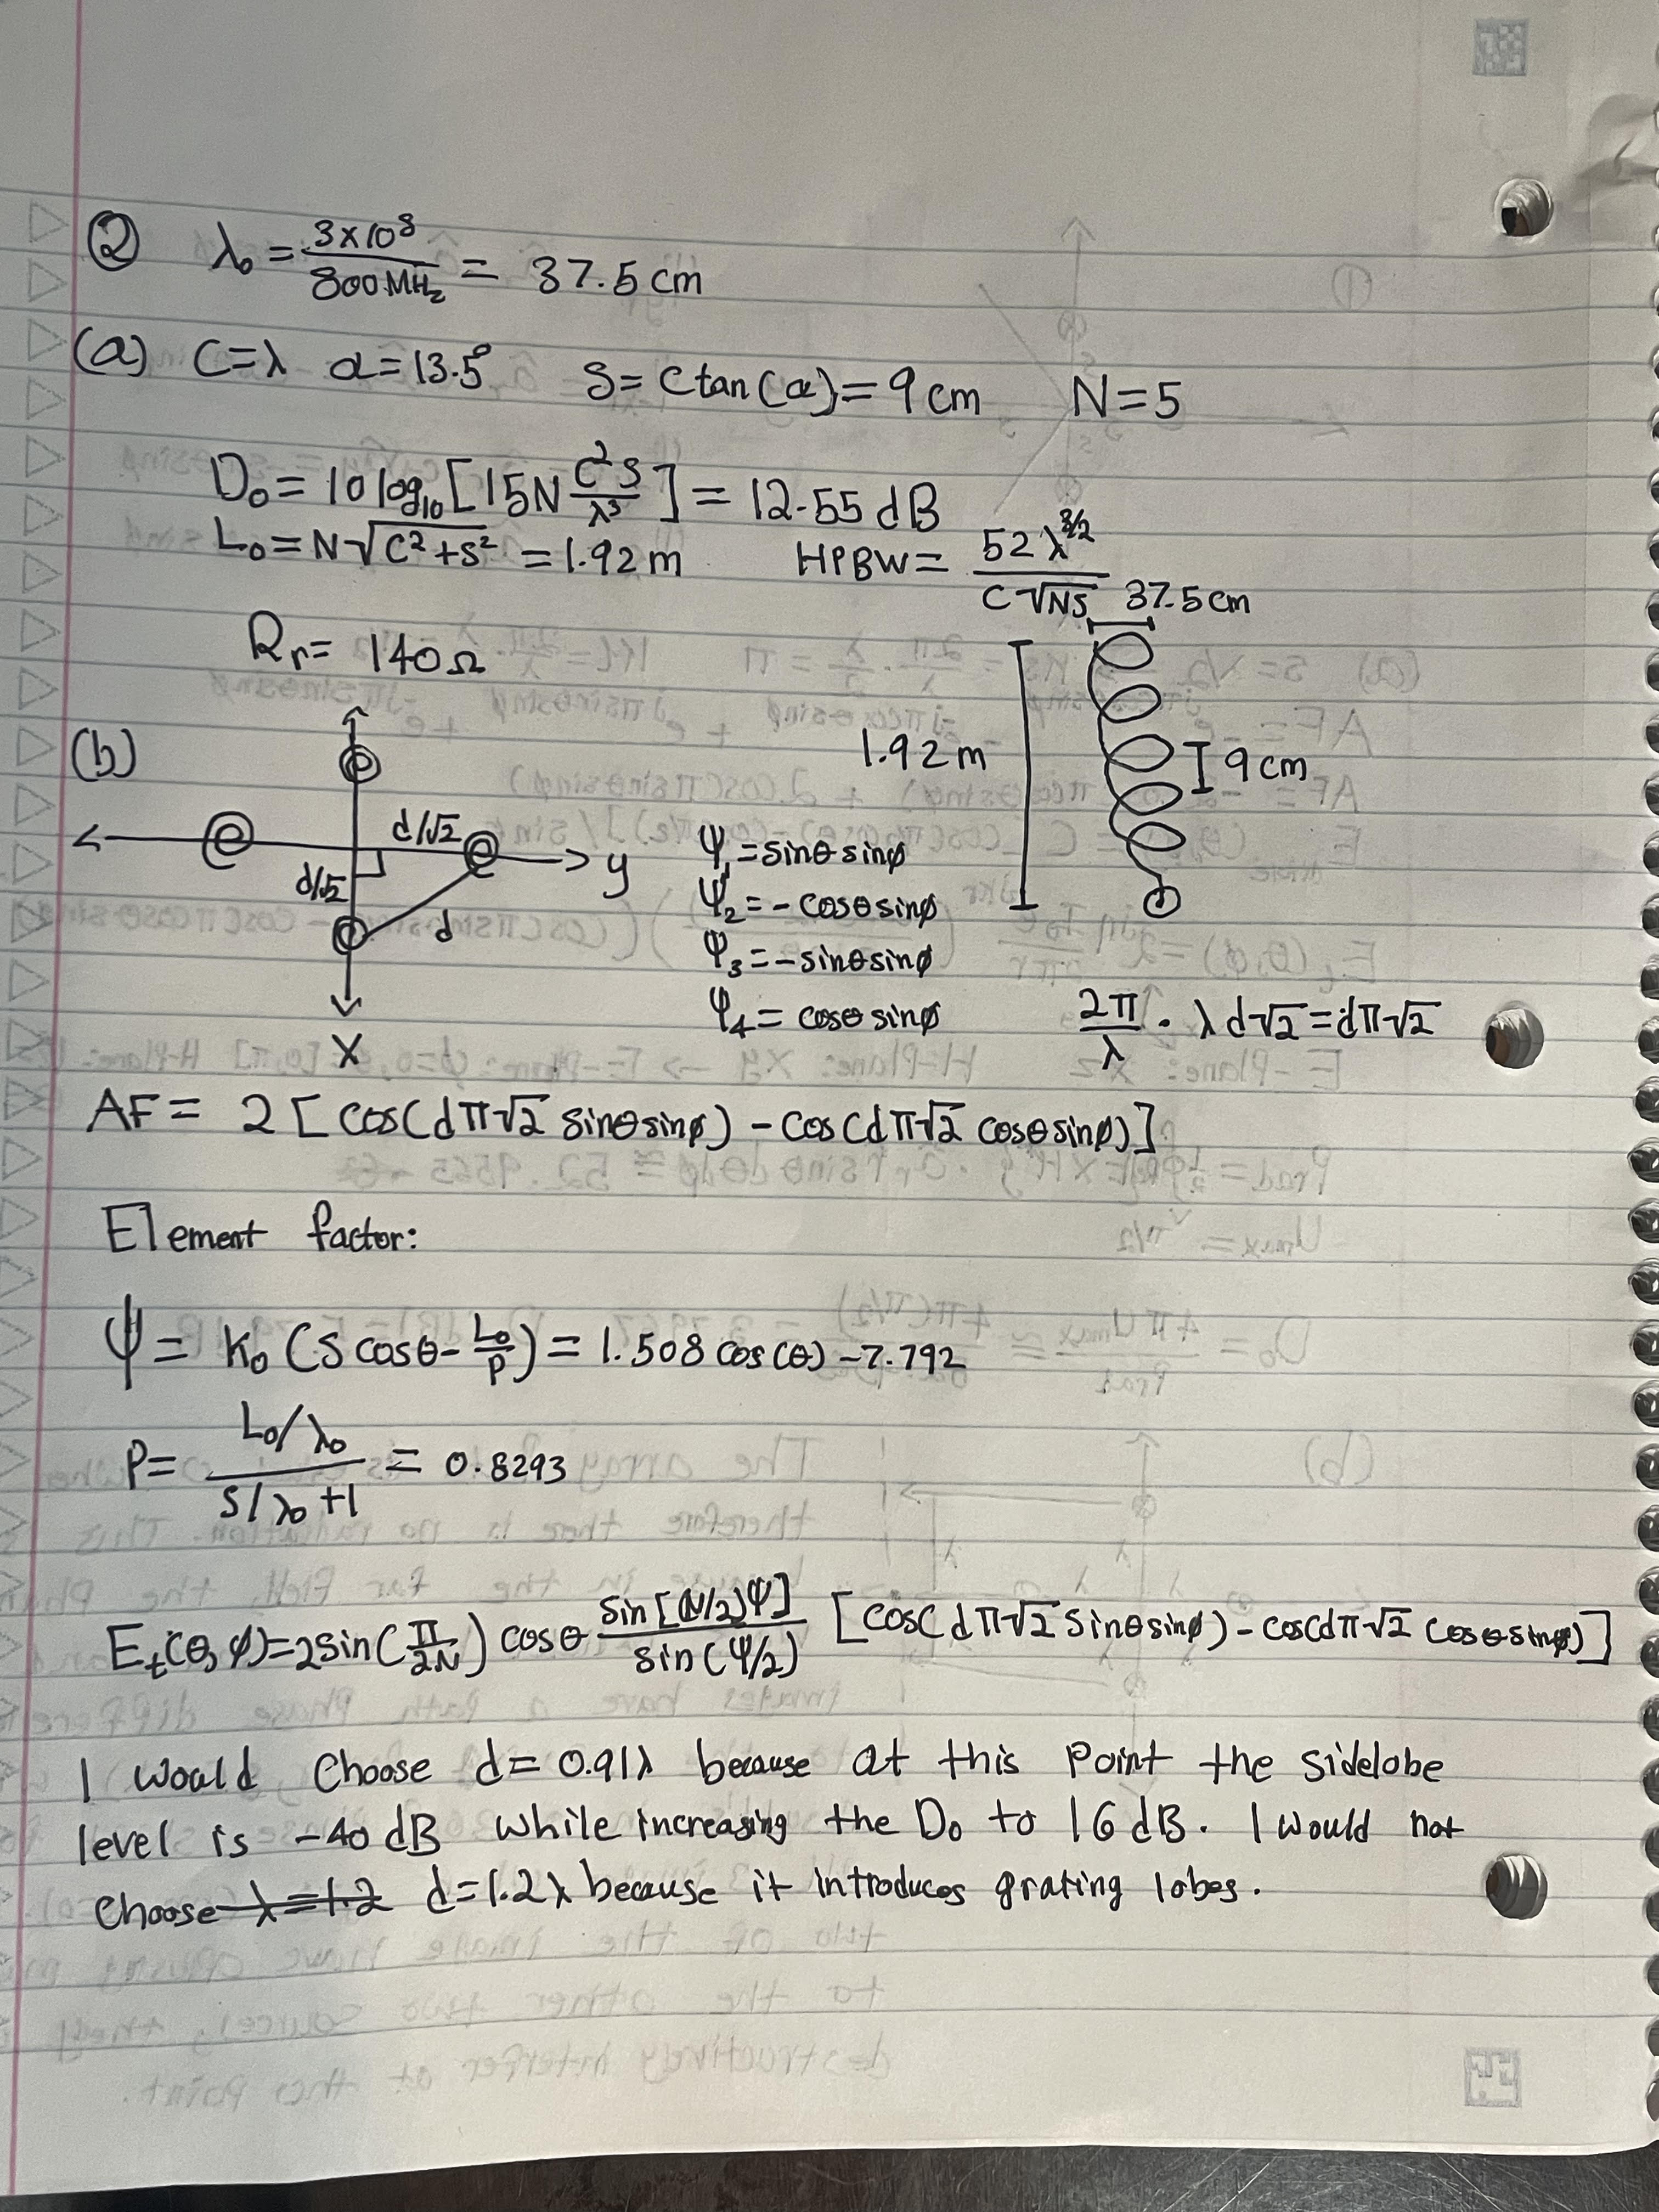 ② λ₀ = 3×10⁸ / 800MHz = 37.5 cm
(a) C=λ α=13.5° S= C tan(α)= 9 cm N=5
D₀ = 10 log₁₀ [15N C²S / λ³] = 12.55 dB
L₀ = N√(C²+S²) = 1.92 m HPBW = 52 λ^(3/2) / C√NS
37.5 cm
Rr = 140Ω
(b) 1.92 m 9 cm
d/√2 y
d/√2
d
X
Ψ₁ = sinθ sinφ
Ψ₂ = - cosθ sinφ
Ψ₃ = - sinθ sinφ
Ψ₄ = cosθ sinφ
2π/λ · λ d√2 = dπ√2
AF = 2 [ cos(dπ√2 sinθ sinφ) - cos(dπ√2 cosθ sinφ) ]
Element factor:
Ψ = K₀ (S cosθ - L₀/P) = 1.508 cos(θ) - 7.792
P = L₀/λ₀ / S/λ₀ + 1 = 0.8293
Et(θ, φ) = 2 sin(π/2N) cosθ sin[(N/2)Ψ] / sin(Ψ/2) [cos(dπ√2 sinθ sinφ) - cos(dπ√2 cosθ sinφ)]
I would choose d= 0.91λ because at this point the sidelobe
level is -40 dB while increasing the D₀ to 16 dB. I would not
choose λ=1.2 d=1.2λ because it introduces grating lobes.